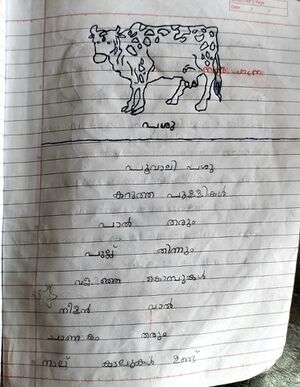 പശു
പൂവാലി പശു
കറുത്ത പുള്ളികൾ
പാൽ തരും
പുല്ല് തിന്നും
വളഞ്ഞ കൊമ്പുകൾ
നീളൻ വാൽ
ചാണകം തരും
നാല് കാലുകൾ ഉണ്ട്